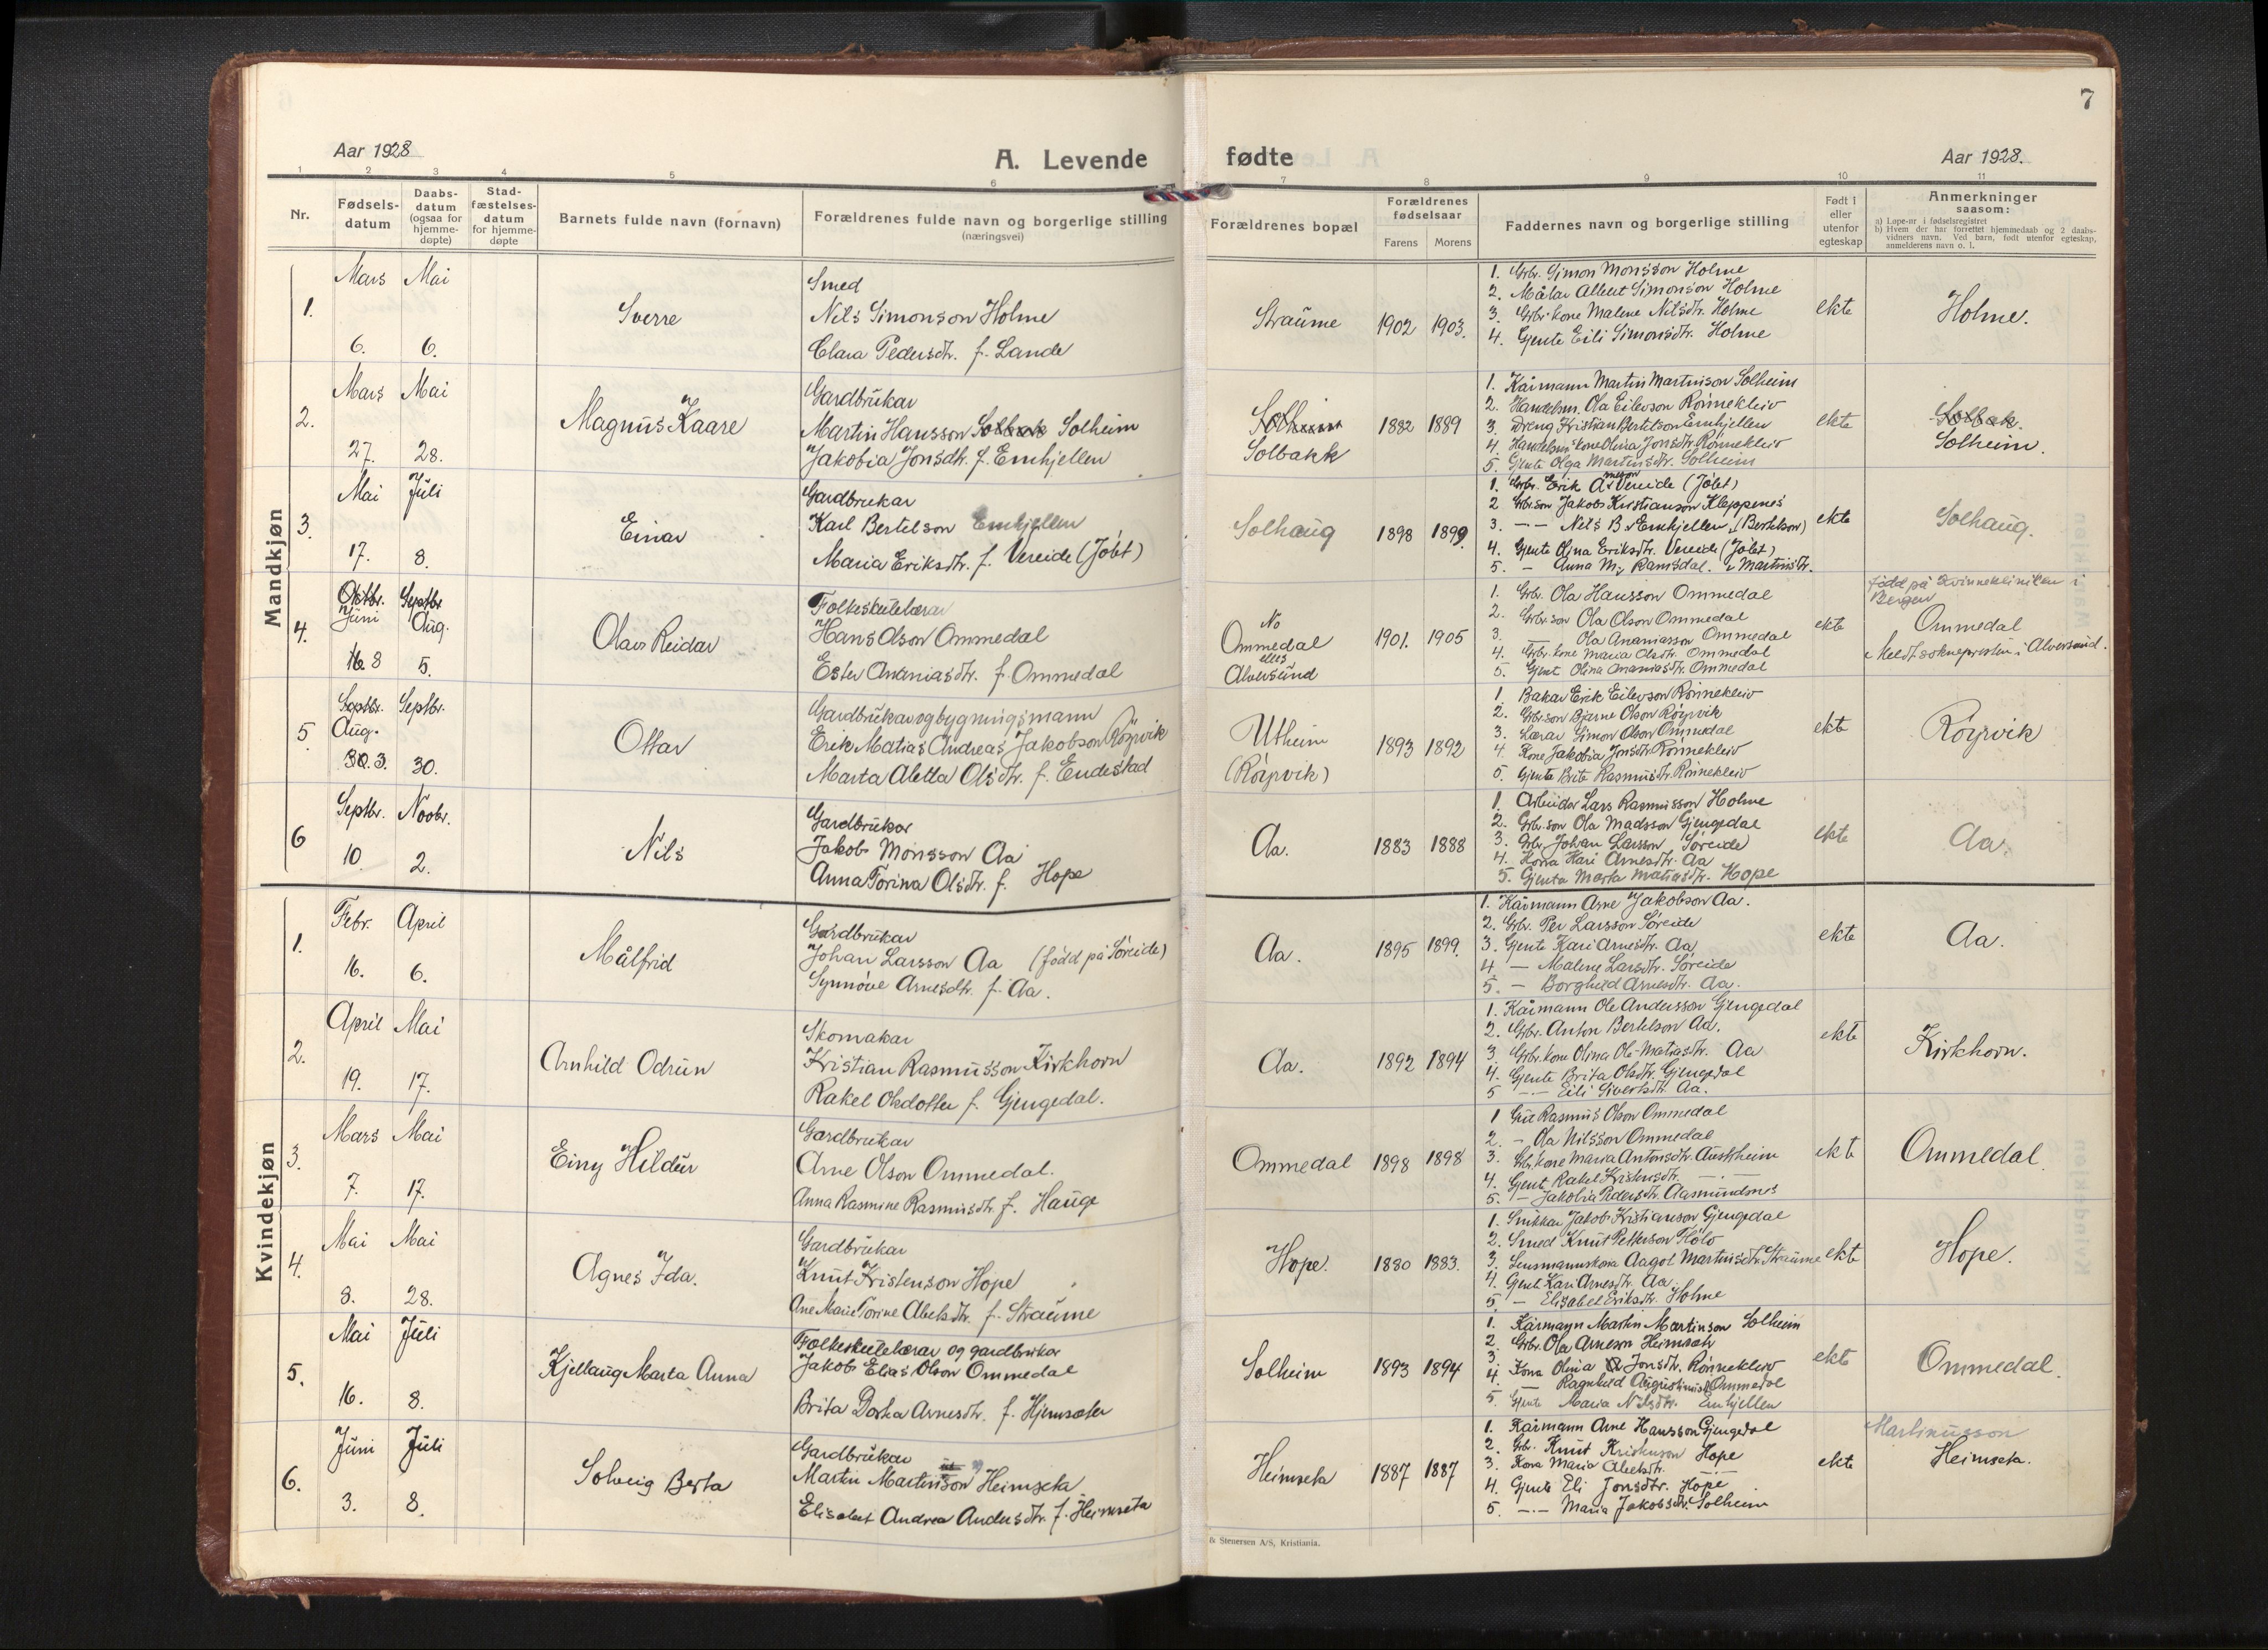 7
Aar 1928
A. Levende
fødte
Aar 1928.
1 2 3 4 5 6 7 8 9 10 11
Nr.
Fødsels-
datum
Daabs-
datum
(ogsaa for
hjemme-
døpte)
Stad-
fæstelses-
datum
for hjemme-
døpte
Barnets fulde navn (fornavn)
Forældrenes fulde navn og borgerlige stilling
(næringsvei)
Forældrenes bopæl
Forældrenes
fødselsaar
Farens Morens
Faddernes navn og borgerlige stilling
Født i
eller
utenfor
egteskap
Anmerkninger
saasom:
a) Løpe-nr i fødselsregistret
b) Hvem der har forrettet hjemmedaab og 2 daabs-
vidners navn. Ved barn, født utenfor egteskap,
anmelderens navn o. l.
Mandkjøn
1.
Mars
6.
Mai
6.
Sverre
Smed
Nils Simonson Holme
Clara Pedersdtr. f. Lande
Straume
1902 1903.
1. Grbr. Simon Monsson Holme
2. Målar Albert Simonson Holme
3. Grbr kone Malene Nilsdtr. Holme
4. Gjente Eili Simonsdtr. Holme
ekte
Holme.
2.
Mars
27.
Mai
28.
Magnus Kaare
Gardbrukar
Martin Hansson Solbak Solheim
Jakobia Jonsdtr. f. Emhjellen
Solheim
Solbakk
1882 1889
1. Kårmann Martin Martinson Solheim
2. Handelsm. Ola Eilevson Rønnekleiv
3. Dreng Kristian Bertelson Emhjellen
4. Handelsm kone Olina Jonsdtr. Rønnekleiv
5. Gjente Olga Martinsdtr. Solheim
ekte
Solbak.
Solheim.
3.
Mai
17.
Juli
8.
Einar
Gardbrukar
Karl Bertelson Emhjellen
Maria Eriksdtr. f. Vereide (Jölet)
Solhaug
1898 1899.
1. Grbr. Erik Arneson Vereide (Jölet)
2 Grbr.son Jakob Kristianson Kleppenes
3. — — Nils B. Emhjellen (Bertelson)
4. Gjente Olina Eriksdtr. Vereide (Jölet)
5. - Anna M. Ramsdal. Martinsdtr.
ekte
Solhaug.
4.
Oktbr.
Juni
16 8
Septbr
Aug.
5.
Olav Reidar
Folkeskulelærar
Hans Olson Ommedal
Ester Ananiasdtr. f. Ommedal
No
Ommedal
elles
Alversund
1901. 1905
1. Grbr. Ola Hansson Ommedal
2. Grbr.son Ola Olson Ommedal
3. — Ola Ananiasson Ommedal
4. Grbr. kone Maria Olsdtr. Ommedal
5. Gjent Olina Ananiasdtr. Ommedal
ekte
född på Kvinnekliniken i
Bergen
Ommedal
Meldt soknepresten i Alversund.
5
Septbr.
Aug.
30. 3.
Septbr.
30.
Ottar
Gardbrukar og bygningsmann
Erik Matias Andreas Jakobson Röyrvik
Marta Aletta Olsdtr. f. Endestad
Utheim
(Röyrvik)
1893 1892
1. Bakar Erik Eilevson Rønnekleiv
2. Grbr.son Bjarne Olson Röyrvik
3. Lærar Simon Olson Ommedal
4 Kone Jakobia Jonsdtr. Rønnekleiv
5. Gjente Brite Rasmusdtr. Rønnekleiv
ekte
Röyrvik
6
Septbr.
10.
Novbr.
2.
Nils
Gardbrukar
Jakob Monsson Aa
Anna Torina Olsdtr. f. Hope
Aa.
1883 1888
1. Arbeider Lars Rasmusson Holme
2. Grbr.son Ola Madsson Gjengedal
3. Grbr. Johan Larsson Søreide
4. Kona Kari Arnesdtr. Aa
5. Gjenta Marta Matiasdtr. Hope
ekte
Aa.
Kvindekjøn
1.
Febr.
16.
April
6.
Målfrid
Gardbrukar
Johan Larsson Aa (född på Søreide)
Synnöve Arnesdtr. f. Aa.
Aa.
1895 1899.
1. Kårmann Arne Jakobson Aa.
2. Grbr. Per Larsson Søreide
3. Gjente Kari Arnesdtr. Aa
4 — Malene Larsdtr. Søreide
5. — Borghild Arnesdtr. Aa.
ekte
Aa.
2.
April
19.
Mai
17.
Arnhild Odrun
Skomakar
Kristian Rasmusson Kirkhorn
Rakel Olsdotter f. Gjengedal.
Aa.
1892 1894
1. Kårmann Ole Andersson Gjengedal
2. Grbr. Anton Bertelson Aa.
3. Grbr. kone Olina Ole-Matiasdtr. Aa
4. Gjente Brita Olsdtr. Gjengedal
5 — — Eili Sivertsdtr. Aa.
ekte
Kirkhorn.
3.
Mars
7.
Mai
17.
Einy Hildur
Gardbrukar
Arne Olson Ommedal.
Anna Rasmine Rasmusdtr. f. Hauge
Ommedal
1898 1898
1 Gut Rasmus Olson Ommedal
2. — Ola Nilsson Ommedal
3. Grbr. kone Maria Antonsdtr. Austrheim
4. Gjent Rakel Kristensdtr. —
5. — Jakobia Pedersdtr. Aasmundsnes
ekte
Ommedal.
4.
Mai
8.
Mai
28.
Agnes Ida.
Gardbrukar
Knut Kristenson Hope
Ane Marie Torine Abelsdtr. f. Straume
Hope.
1880 1883.
1. Snikkar Jakob Kristianson Gjengedal
2. Smed Knut Petterson Holo
3. Lensmannskona Aagot Martinsdtr. Straume
4. Gjent Kari Arnesdtr. Aa.
5. — Elisabet Eriksdtr. Holme
ekte
Hope.
5.
Mai
16.
Juli
8.
Kjellaug Marta Anna
Folkeskulelærar og gardbrukar
Jakob Elias Olson Ommedal
Brita Dortea Arnesdtr. f. Hjemseter
Solheim
1893 1894
1. Kårmann Martin Martinson Solheim
2. Grbr. Ola Arneson Heimseta
3. Kona Olina Jonsdtr. Rønnekleiv
4. — Ragnhild Augustinusd. Ommedal
5. Gjente Maria Nilsdtr. Emhjellen
ekte
Ommedal.
6.
Juni
3.
Juli
8.
Solveig Berta
Gardbrukar
Martin Martinson Heimseta
Elisabet Andrea Andersdtr. f. Heimseta
Heimseta
1887 1887
1. Kårmann Arne Hansson Gjengedal
2. Grbr. Knut Kristenson Hope
3. Kona Maria Abelsdtr. —
4. Gjente Eli Jonsdtr. Hope
5. — — Maria Jakobsdtr. Solheim
ekte
Martinusson
Heimseta.
& Stenersen A/S, Kristiania.